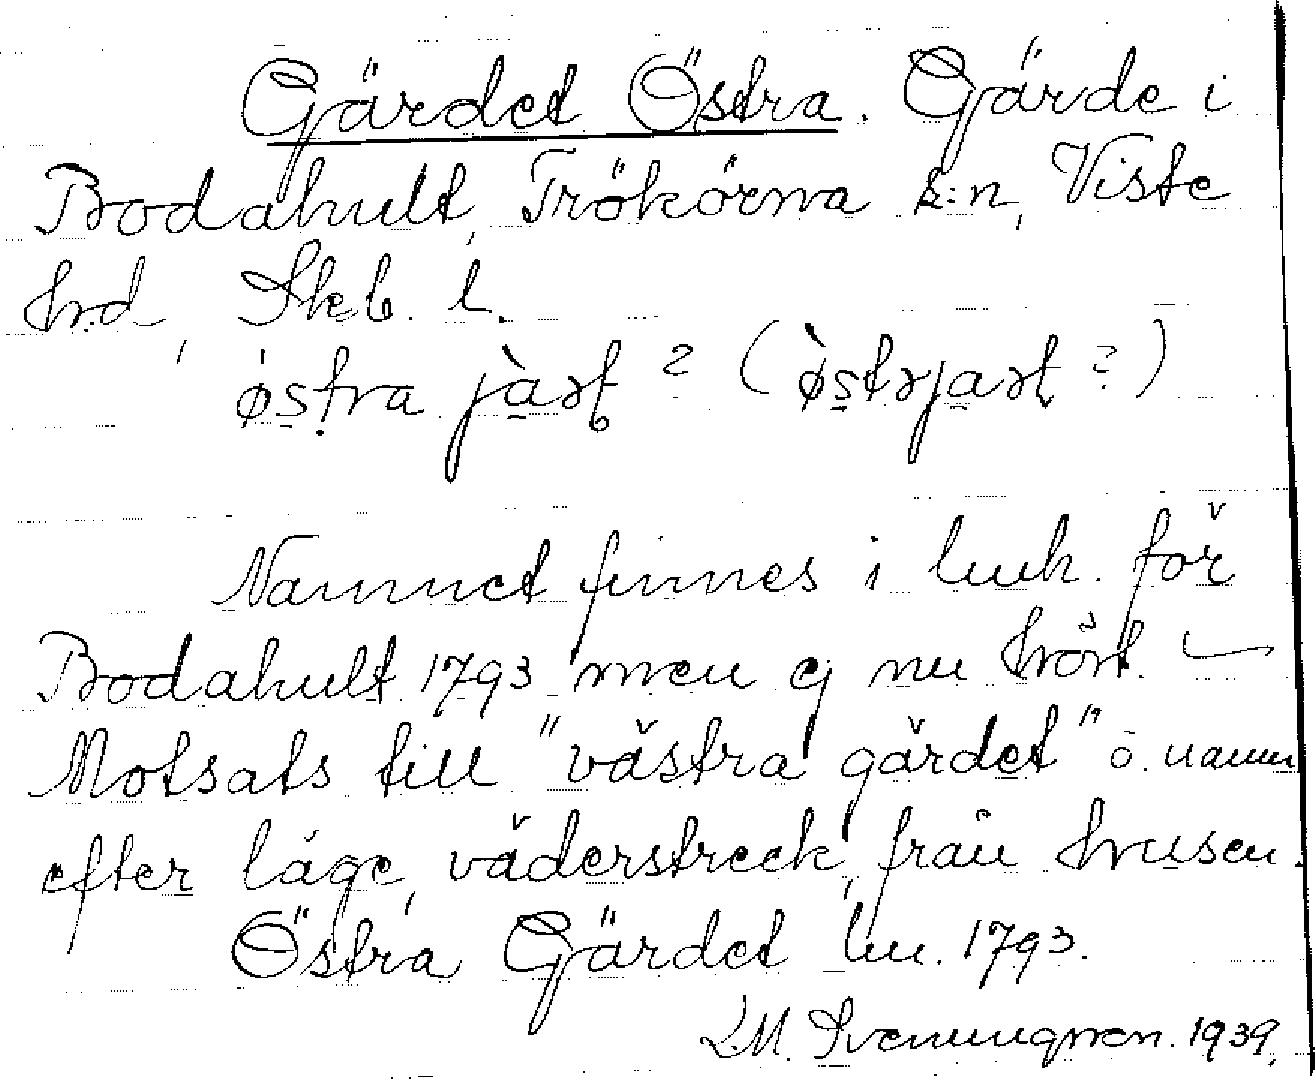 Gärdet Östra. Gärde i
Bodahult, Trökörna s:n, Viste
hrd, Skb. l.
østra jàrt ? (òstrjart ?)
Namnet finnes i lmh. för
Bodahult 1793 men ej nu hört. –
Motsats till "västra gärdet" ö. namn
efter läge, väderstreck, från husen.
Östra Gärdet lm. 1793.
L.M. Svenungsson. 1939.